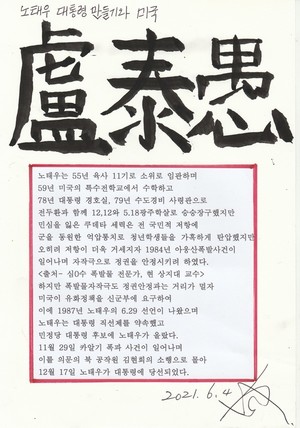 노태우 대통령 만들기와 미국
盧泰愚
노태우는 55년 육사 11기로 소위로 임관하며
59년 미국의 특수전학교에서 수학하고
78년 대통령 경호실, 79년 수도경비 사령관으로
전두환과 함께 12,12와 5.18광주학살로 승승장구했지만
민심을 잃은 쿠데타 세력은 전 국민적 저항에
군을 동원한 억압통치로 청년학생들을 가혹하게 탄압했지만
오히려 저항이 더욱 거세지자 1984년 아웅산폭발사건이
일어나며 자작극으로 정권을 안정시키려 하였다.
<출처- 심O수 폭발물 전문가, 현 상지대 교수>
하지만 폭발물자작극도 정권안정과는 거리가 멀자
미국이 유화정책을 신군부에 요구하여
이에 1987년 노태우의 6.29 선언이 나왔으며
노태우는 대통령 직선제를 약속했고
민정당 대통령 후보에 노태우가 올랐다.
11월 29일 칼알기 폭파 사건이 일어나며
이를 의문의 북 공작원 김현희의 소행으로 몰아
12월 17일 노태우가 대통령에 당선되었다.
2021. 6. 4